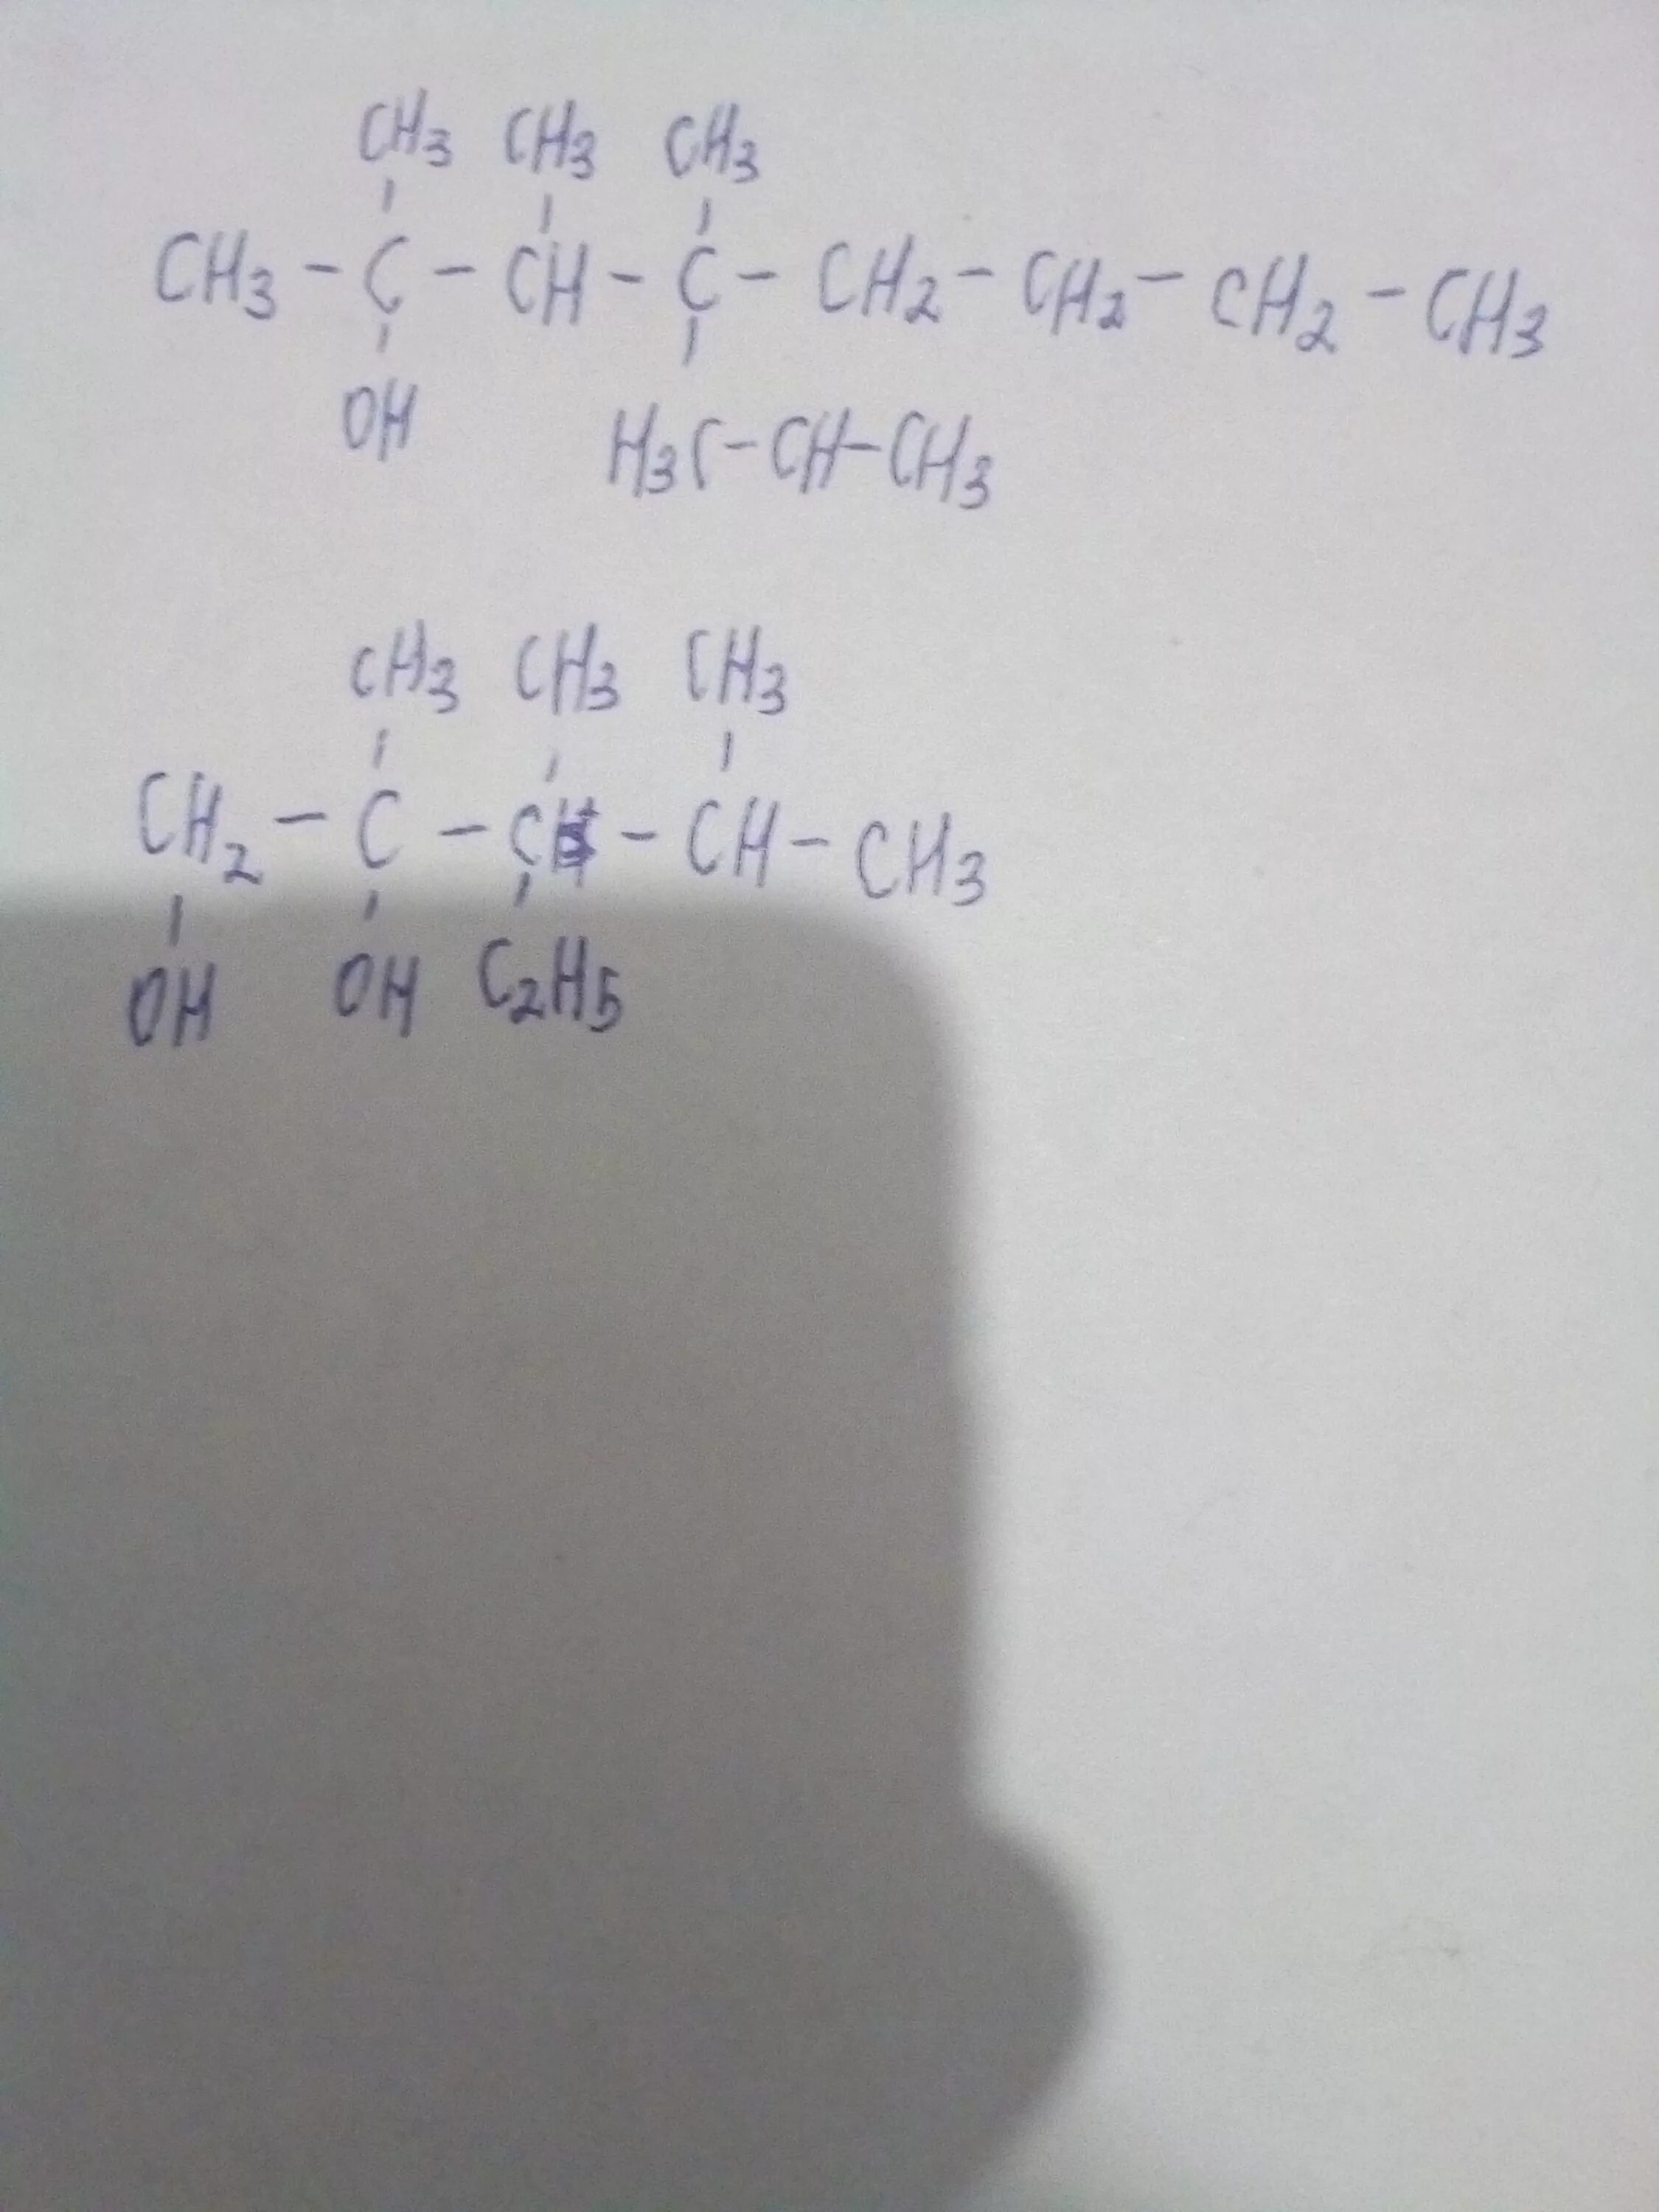 CH3 CH3 CH3
CH3 - C - CH - C - CH2 - CH2 - CH2 - CH3
OH
H3C - CH - CH3
CH3 CH3 CH3
CH2 - C - C - CH - CH3
OH OH C2H5